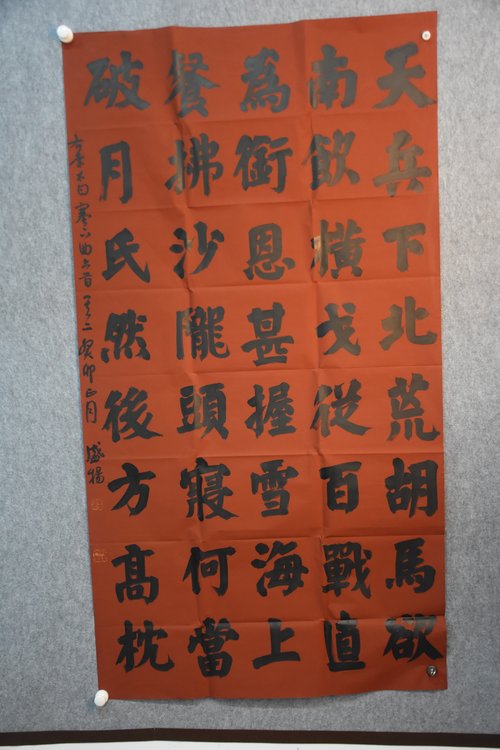 天兵下北荒胡馬欲
南飲橫戈從百戰直
爲銜恩甚握雪海上
餐拂沙隴頭寢何當
破月氏然後方髙枕
右李太白塞下曲六首其二癸卯正月盛楊